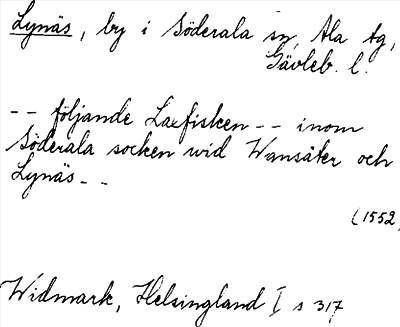 Lynäs, by i Söderala sn, Ala tg,
Gävleb. l.
-- följande Laxfisken -- inom
Söderala socken wid Wansäter och
Lynäs --
(1552,
Widmark, Helsingland I s 317